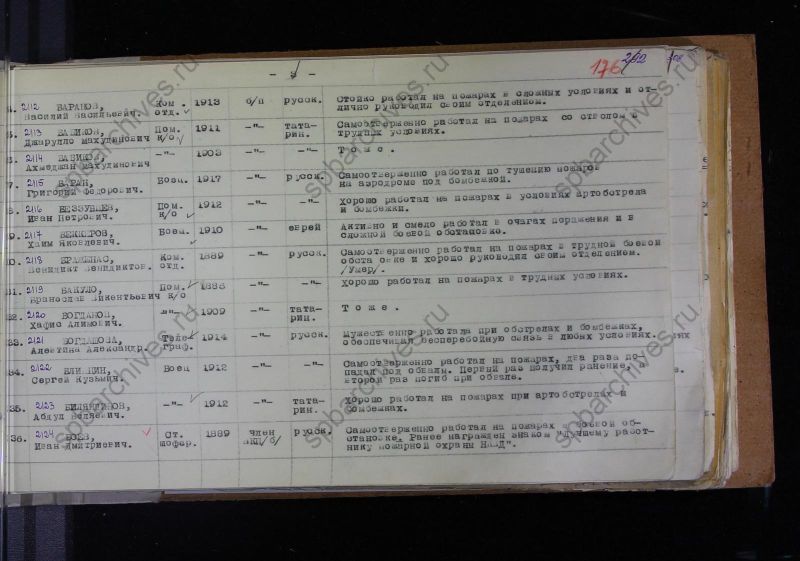 - 3 -
176 202
4. 2112 БАРАНОВ, Ком. 1913 б/п русск. Стойко работал на пожарах в сложных условиях и от-
Василий Васильевич. отд. лично руководил своим отделением.
5. 2113 Пом. 1911 -"- тата- Самоотверженно работал на пожарах со стволом в
Джарулло Махудинович к/о рин. трудных условиях.
6. 2114 -"- 1903 -"- -"- Т о ж е .
Ахмеджан Махудинович
7. 2115 БАРАН, Боец. 1917 -"- русск. Самоотверженно работал по тушению пожаров
Григорий Федорович. на аэродроме под бомбежкой.
8. 2116 БЕЗЗУБЦЕВ, Пом. 1912 -"- -"- Хорошо работал на пожарах в условиях артобстрела
Иван Петрович. к/о и бомбежки.
9. 2117 БЕККЕРОВ, Боец. 1910 -"- еврей Активно и смело работал в очагах поражения и в
Хаим Яковлевич. сложной боевой обстановке.
2118 Ком. 1889 -"- русск. Самоотверженно работал на пожарах в трудной боевой
Бенидикт Бенидиктов. отд. обста овке и хорошо руководил своим отделением.
/Умер/.
31. 2119 БАКУЛО, Пом. 1888 -"- -"- Хорошо работал на пожарах в трудных условиях.
Бранослав Викентьевич к/о
32. 2120 БОГДАНОВ, -"- 1909 -"- тата- Т о ж е .
Хафис Алимович. рин.
33. 2121 БОГДАНОВА, Телег 1914 -"- русск. Мужественно работала при обстрелах и бомбежках,
Алевтина Александр. граф. обеспечивая бесперебойную связь в любых условиях.
34. 2122 Боец 1912 -"- -"- Самоотверженно работал на пожарах, два раза по-
Сергей Кузьмич. падал под обвалы. Первый раз получил ранение,
второй раз погиб при обвале.
35. 2123 -"- 1912 -"- тата- Хорошо работал на пожарах при артобстрелах и
Абдул рин. бомбежках.
36. 2124 БОЕВ, Ст. 1889 член русск. Самоотверженно работал на пожарах в боевой об-
Иван Дмитриевич. шофер. ВКП/б/ становке. Ранее награжден знаком "Лучшему работ-
нику пожарной охраны НКВД".
spbarchives.ru